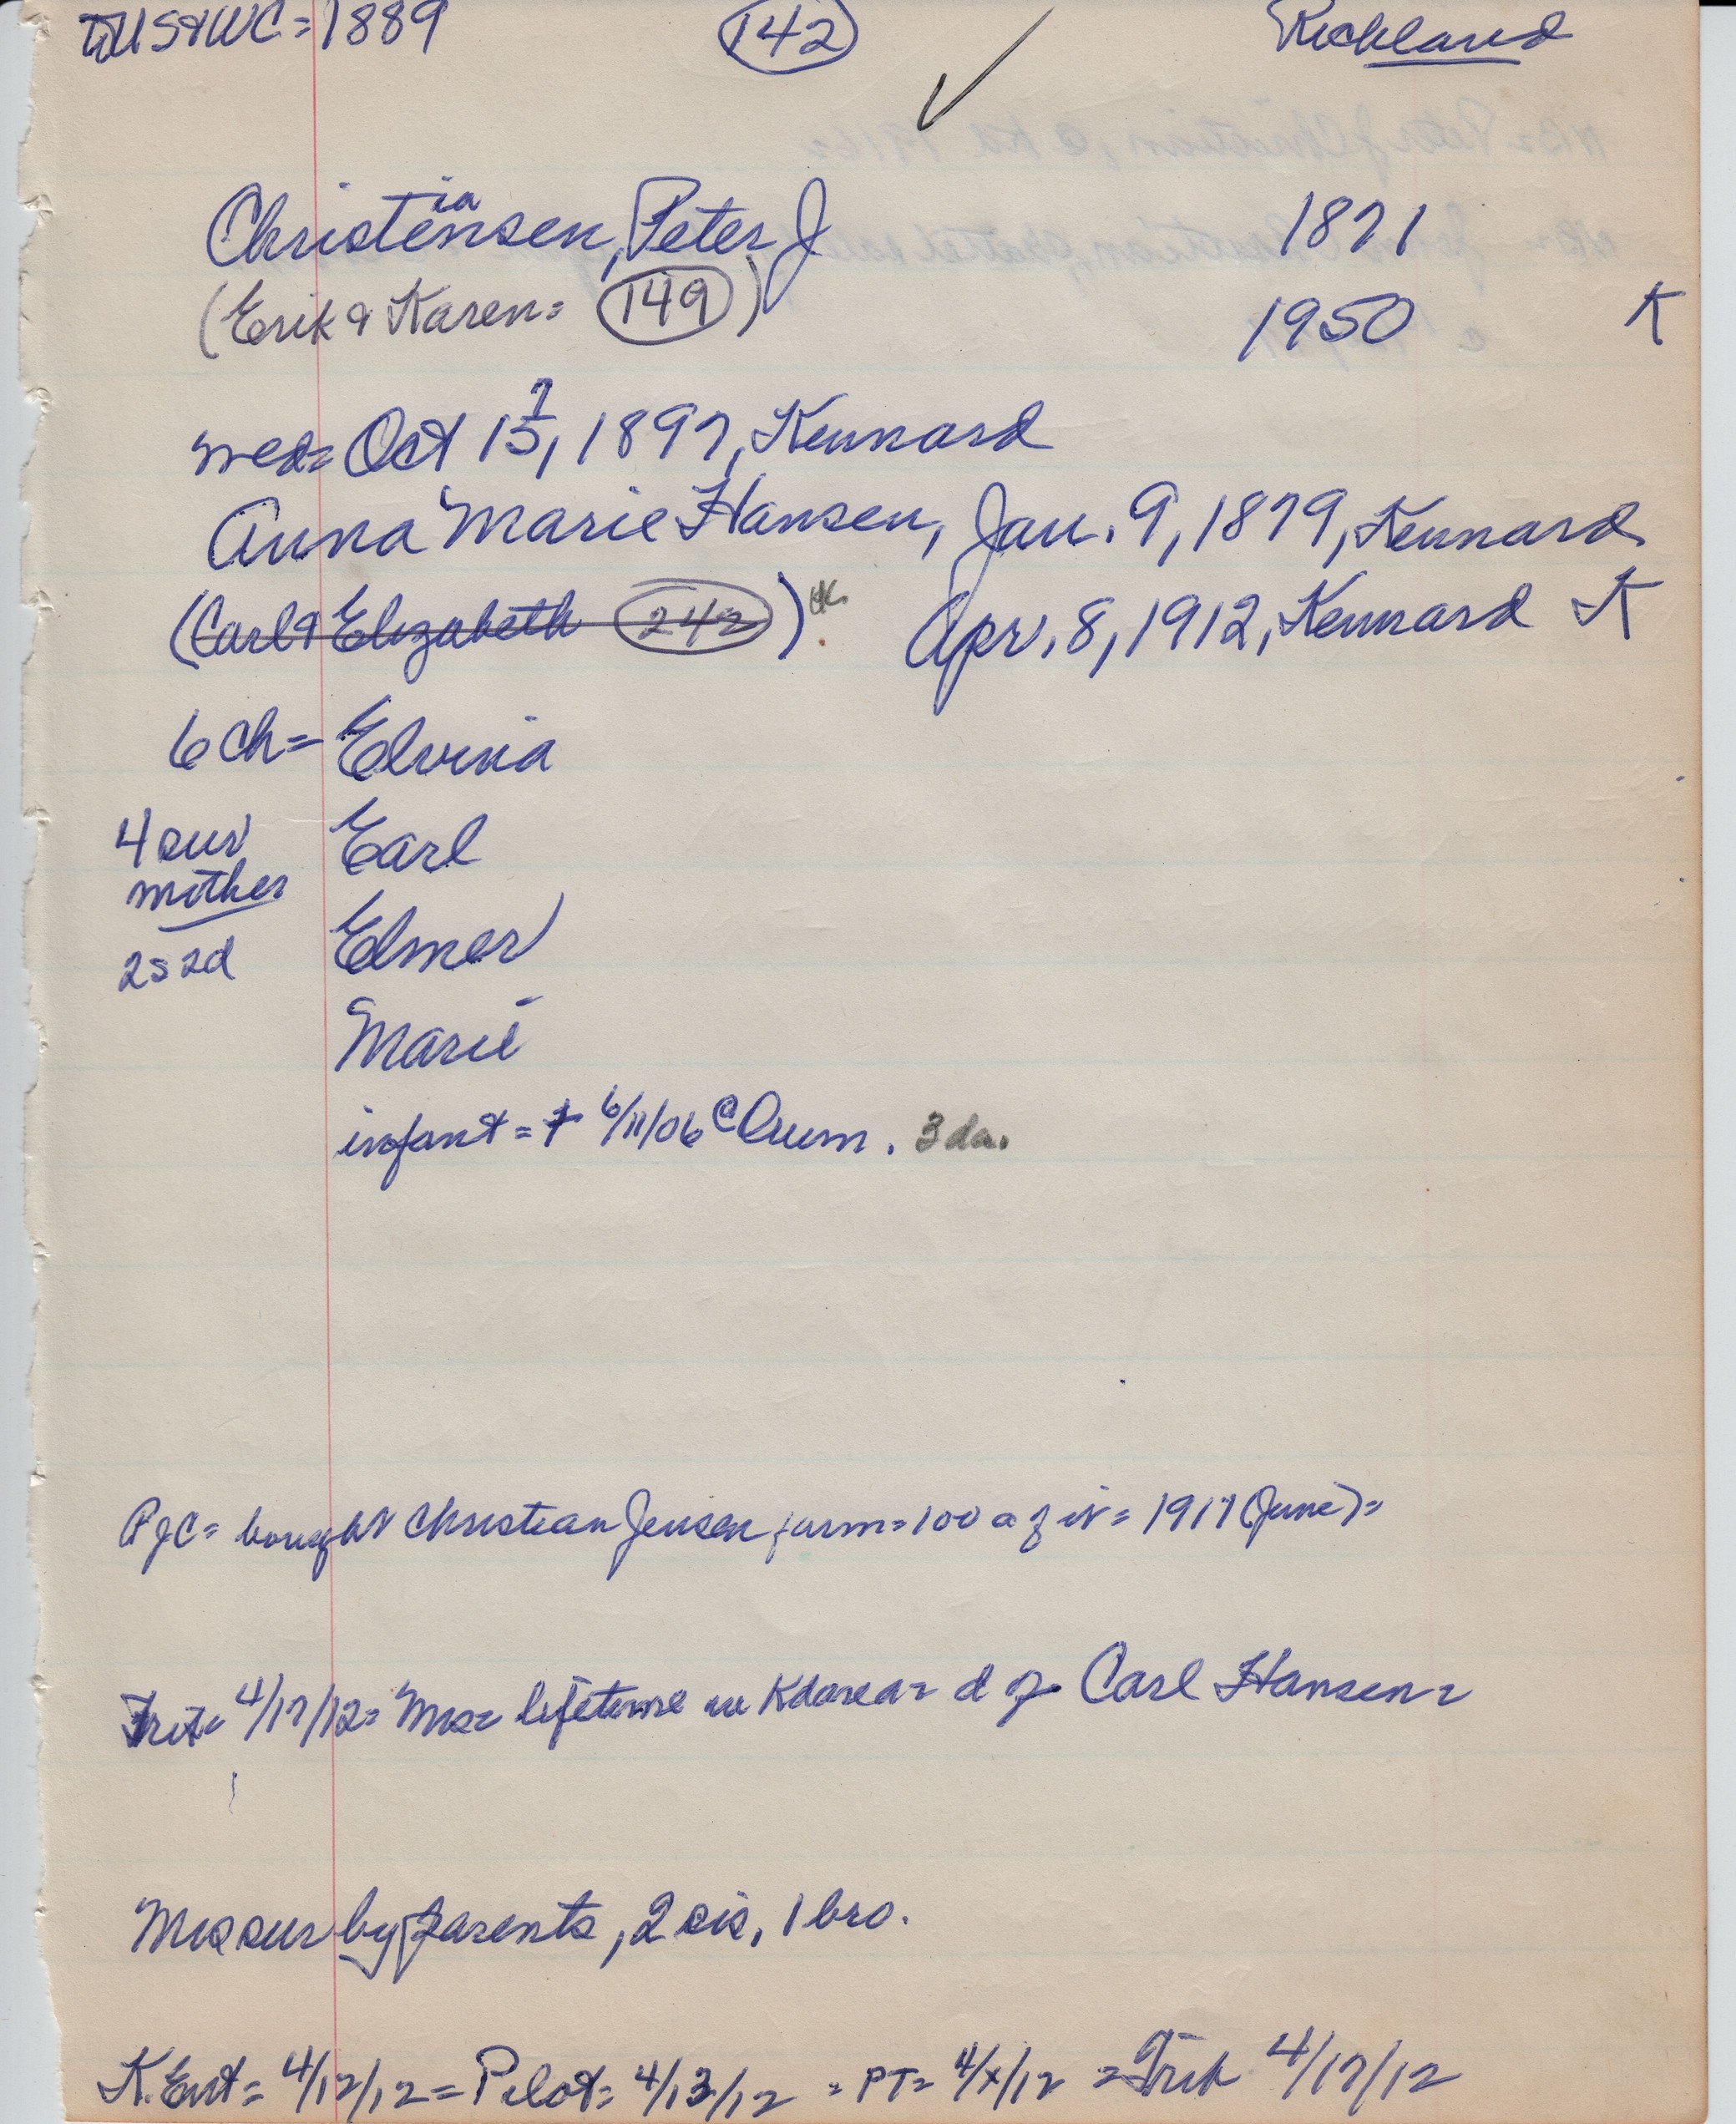 US & WC = 1889 (142) Richland
Christensen, Peter J 1871
ia
(Erik & Karen = (149)) 1950 K
med = Oct 15, 1897, Kennard
7
Anna Marie Hansen, Jan. 9, 1879, Kennard
(Carl & Elizabeth (242)) Apr. 8, 1912, Kennard K
6 ch = Elvina
4 sur Earl
mother
2s 2d Elmer
Marie
infant = † 6/11/06 @ Orum. 3 da.
PJC = bought Christian Jensen farm = 100 a of it = 1917 (June) =
Trib = 4/17/12 = Mrs = lifetime in Kd area = d of Carl Hansen =
Mrs sur by parents, 2 sis, 1 bro.
K. Ent = 4/12/12 = Pilot = 4/13/12 = PT = 4/x/12 = Trib 4/17/12